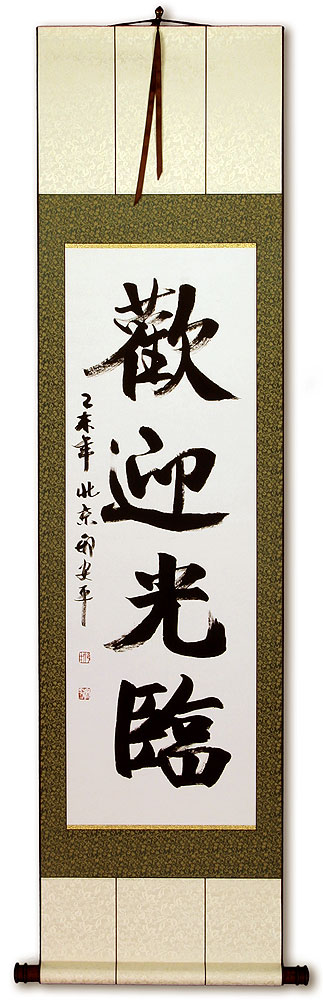 歡迎光臨
乙未年北京邢安平